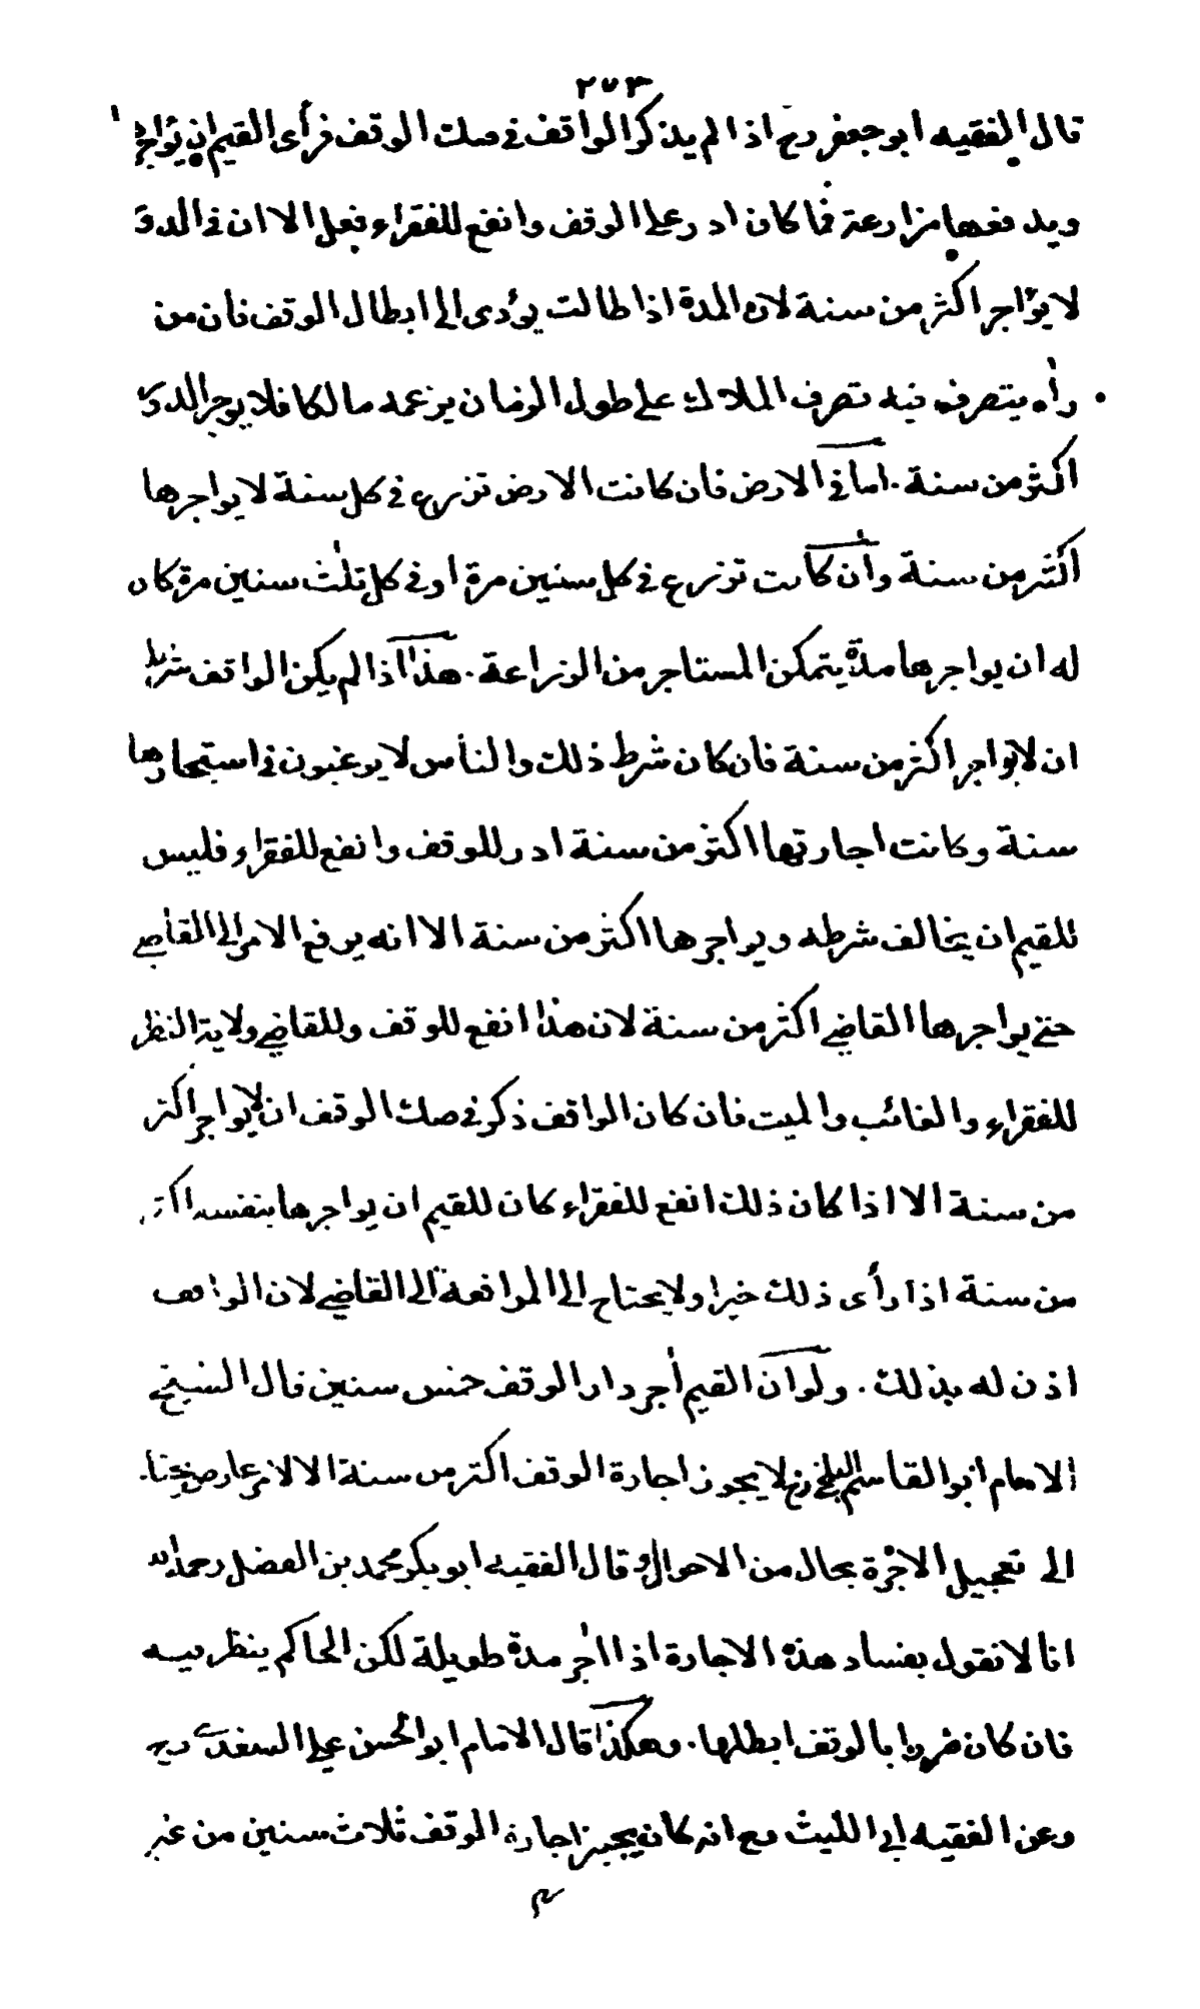 ٢٧٣
قال الفقيه ابو جعفر رح اذا لم يذكر الواقف في صك الوقف فرأى القيم ان يؤاجرها
ويدفعها مزارعة فما كان ادر على الوقف وانفع للفقراء فعل الا ان في الدور
لا يؤاجر اكثر من سنة لان المدة اذا طالت يؤدى الى ابطال الوقف فان من
راه يتصرف فيه تصرف الملاك على طول الزمان يزعمه مالكا فلا يوجر الدور
اكثر من سنة. اما في الارض فان كانت الارض تزرع في كل سنة لا يواجرها
اكثر من سنة وان كانت تزرع في كل سنين مرة او في كل ثلث سنين مرة كان
له ان يواجرها مدة يتمكن المستاجر من الزراعة. هذا اذا لم يكن الواقف شرط
ان لا يواجر اكثر من سنة فان كان شرط ذلك والناس لا يرغبون في استيجارها
سنة وكانت اجارتها اكثر من سنة ادر للوقف وانفع للفقراء فليس
للقيم ان يخالف شرطه ويواجرها اكثر من سنة الا انه يرفع الامر الى القاضي
حتى يواجرها القاضي اكثر من سنة لان هذا انفع للوقف وللقاضي ولاية النظر
للفقراء والغائب والميت فان كان الواقف ذكر في صك الوقف ان لا يواجر اكثر
من سنة الا اذا كان ذلك انفع للفقراء كان للقيم ان يواجرها بنفسه اكثر
من سنة اذا رأى ذلك خيرا ولا يحتاج الى المرافعة الى القاضي لان الواقف
اذن له بذلك. ولو ان القيم أجر دار الوقف خمس سنين قال الشيخ
الامام ابو القاسم البلخي رح لا يجوز اجارة الوقف اكثر من سنة الا لامر عارض يحتاج
الى تعجيل الاجرة بحال من الاحوال وقال الفقيه ابو بكر محمد بن الفضل رحمه الله
انا لا نقول بفساد هذه الاجارة اذا اجر مدة طويلة لكن الحاكم ينظر فيه
فان كان ضررا بالوقف ابطلها. وهكذا قال الامام ابو الحسن على السغدى رح
وعن الفقيه ابى الليث رح انه كان يجيز اجارة الوقف ثلاث سنين من غير